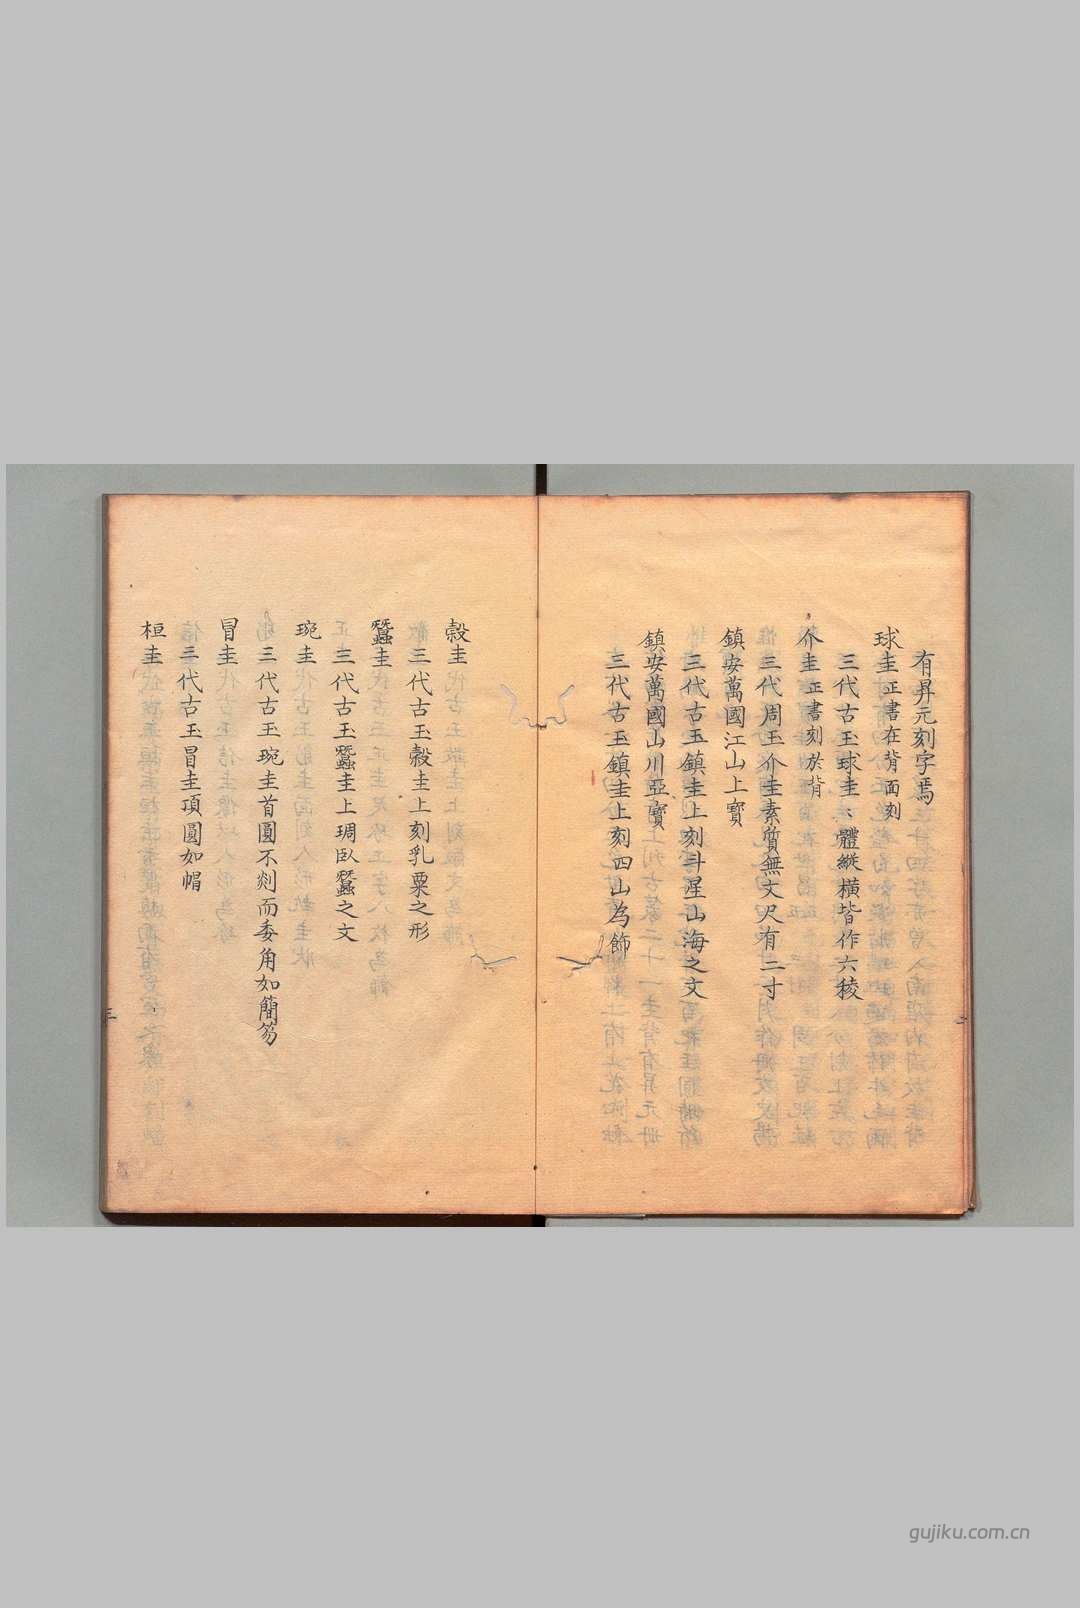 有昇元刻字焉
球圭正書在背面刻
三代古玉球圭〻體縱橫皆作六稜
介圭正書刻於背
三代周王介圭素質無文尺有二寸
鎮安萬國江山上寳
三代古玉鎮圭上刻斗星山海之文
鎮安萬國山川亞寳
三代古玉鎮圭上刻四山為飾
穀圭
三代古玉穀圭上刻乳粟之形
蠶圭
三代古玉蠶圭上琱臥蠶之文
琬圭
三代古玉琬圭首圓不剡而委角如簡笏
冒圭
三代古玉冒圭項圓如帽
桓圭
二
三
gujiku.com.cn